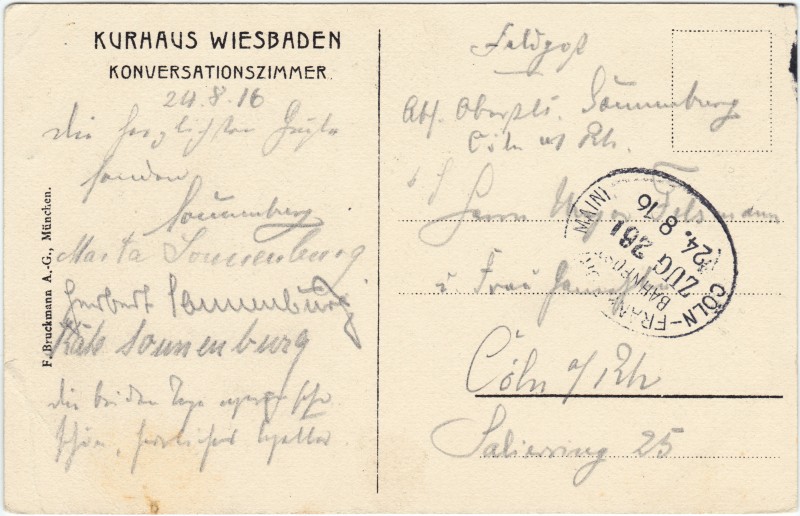 KURHAUS WIESBADEN
KONVERSATIONSZIMMER.
24.8.16
Die herzlichsten Grüße
senden
Sonnenburg
Marta Sonnenburg
Herbert Sonnenburg
Käte Sonnenburg
Die beiden Tage sehr
schön, herrliches Wetter.
F. Bruckmann A.-G., München.
Feldpost
Abs. Oberstlt. Sonnenburg
Cöln a/ Rh.
Herrn Major
u. Frau Gemahlin
Cöln a/Rh
Salierring 25
CÖLN-FRANKF. (MAIN)
BAHNPOST
ZUG 261
24. 8 16